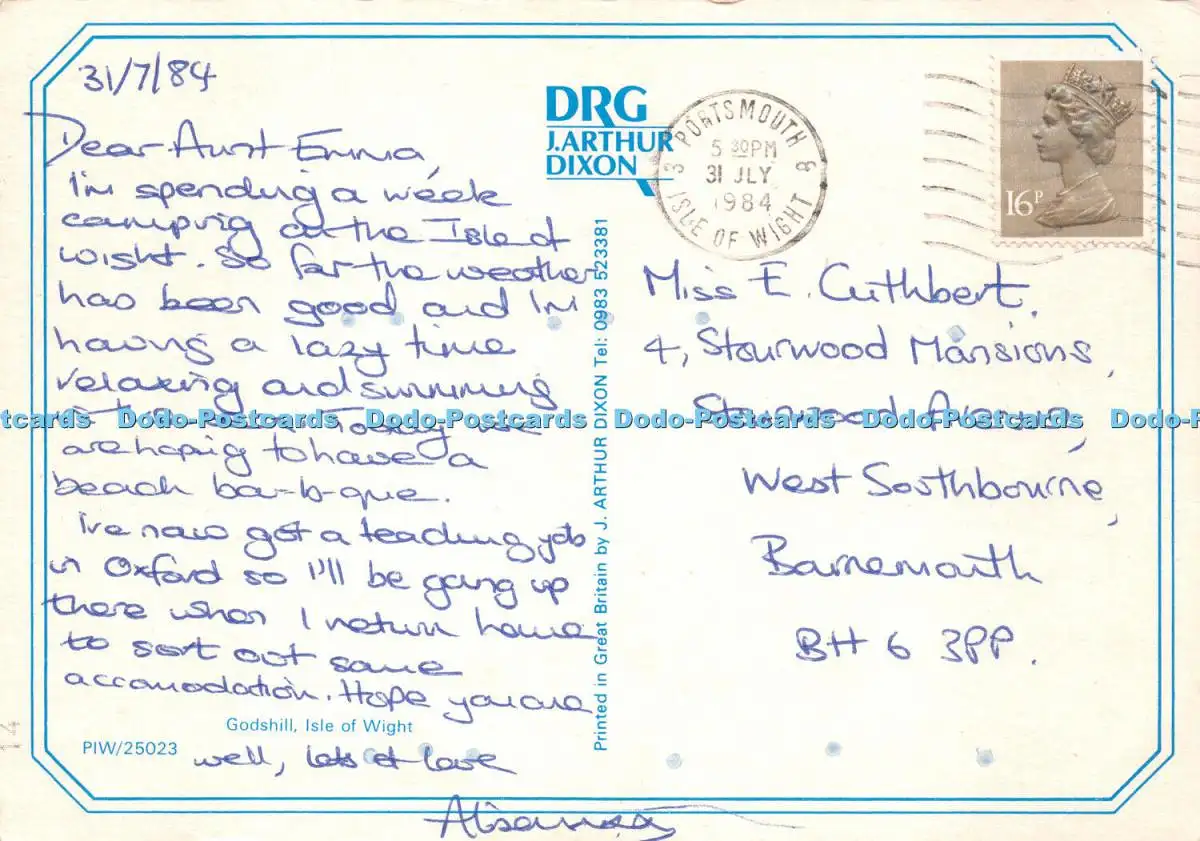 31/7/84
Dear Aunt Emma,
I'm spending a week
camping on the Isle of
Wight. So far the weather
has been good and I'm
having a lazy time
relaxing and swimming
in the sea. Today we
are hoping to have a
beach bar-b-que.
I've now got a teaching job
in Oxford so I'll be going up
there when I return home
to sort out some
accomodation. Hope you are
well, lots of love
Godshill, Isle of Wight
PIW/25023
DRG
J.ARTHUR
DIXON
Printed in Great Britain by J. ARTHUR DIXON Tel: 0983 523381
PORTSMOUTH &
ISLE OF WIGHT
3
5 30PM
31 JLY
1984
16P
Miss E. Cuthbert,
4, Stourwood Mansions,
Stourwood Avenue,
West Southbourne,
Bournemouth
BH6 3PP.
Dodo-Postcards Dodo-Postcards Dodo-Postcards Dodo-Postcards Dodo-Postcards
14